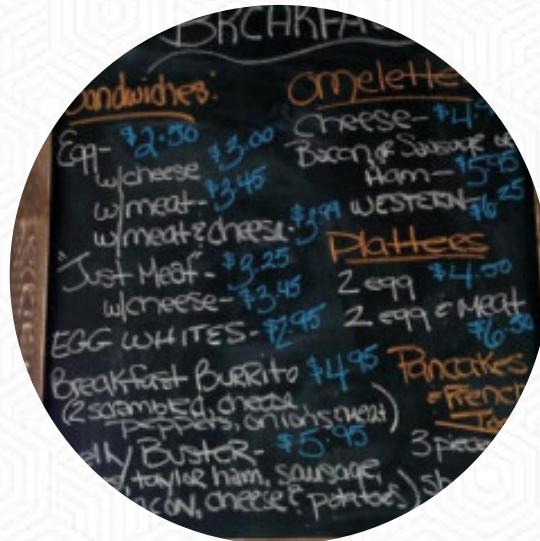 BRCAKFA
Sandwiches:
Egg- $2.50
w/cheese $3.00
w/meat- $3.45
w/meat & cheese- $3.99
"Just Meat"- $3.25
w/cheese- $3.45
EGG WHITES- $2.95
Breakfast BURRITO $4.95
(2 scrambled, cheese
peppers, onions, meat)
Belly BUSTER- $5.95
taylor ham, sausage,
bacon, cheese & potatoes)
Omelette
Cheese- $4.
Bacon or Sausage or
Ham- $5.95
WESTERN- $6.25
Platters
2 egg $4.50
2 egg & Meat
$6.50
Pancakes
& French
3 piece